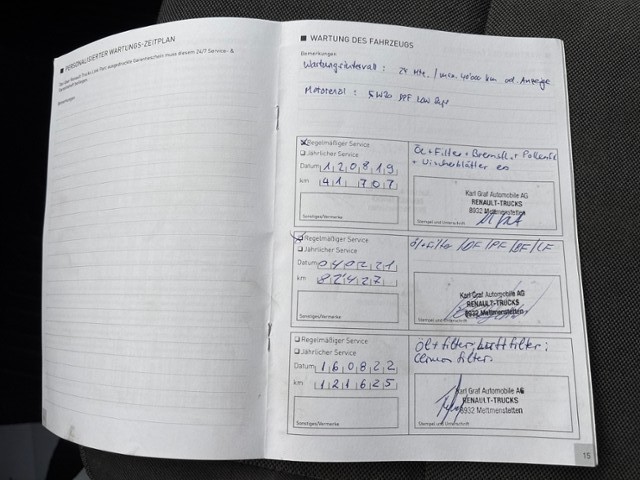 ■ PERSONALISIERTER WARTUNGS-ZEITPLAN
Bemerkungen:
■ WARTUNG DES FAHRZEUGS
Bemerkungen:
Wartungsintervall : 24 Mte. / max. 40'000 km od. Anzeige
Motorenöl : 5W30 DPF Low
☒ Regelmäßiger Service
❑ Jährlicher Service
Datum 1 2 0 8 1 9
km 4 1 7 0 7
Sonstiges/Vermerke
Öl + Filter + Bremsfl. + Pollenfilt
+ Wischerblätter
Karl Graf Automobile AG
RENAULT-TRUCKS
8932 Mettmenstetten
Stempel und Unterschrift
☒ Regelmäßiger Service
❑ Jährlicher Service
Datum 0 4 0 2 2 1
km 8 2 4 2 7
Sonstiges/Vermerke
Öl + Filter / DF / PF / BF / LF
Karl Graf Automobile AG
RENAULT-TRUCKS
8932 Mettmenstetten
❑ Regelmäßiger Service
❑ Jährlicher Service
Datum 1 6 0 8 2 2
km 1 2 1 6 2 5
Sonstiges/Vermerke
Öl + filter, Luftfilter;
filter.
Karl Graf Automobile AG
RENAULT-TRUCKS
8932 Mettmenstetten
Stempel und Unterschrift
15